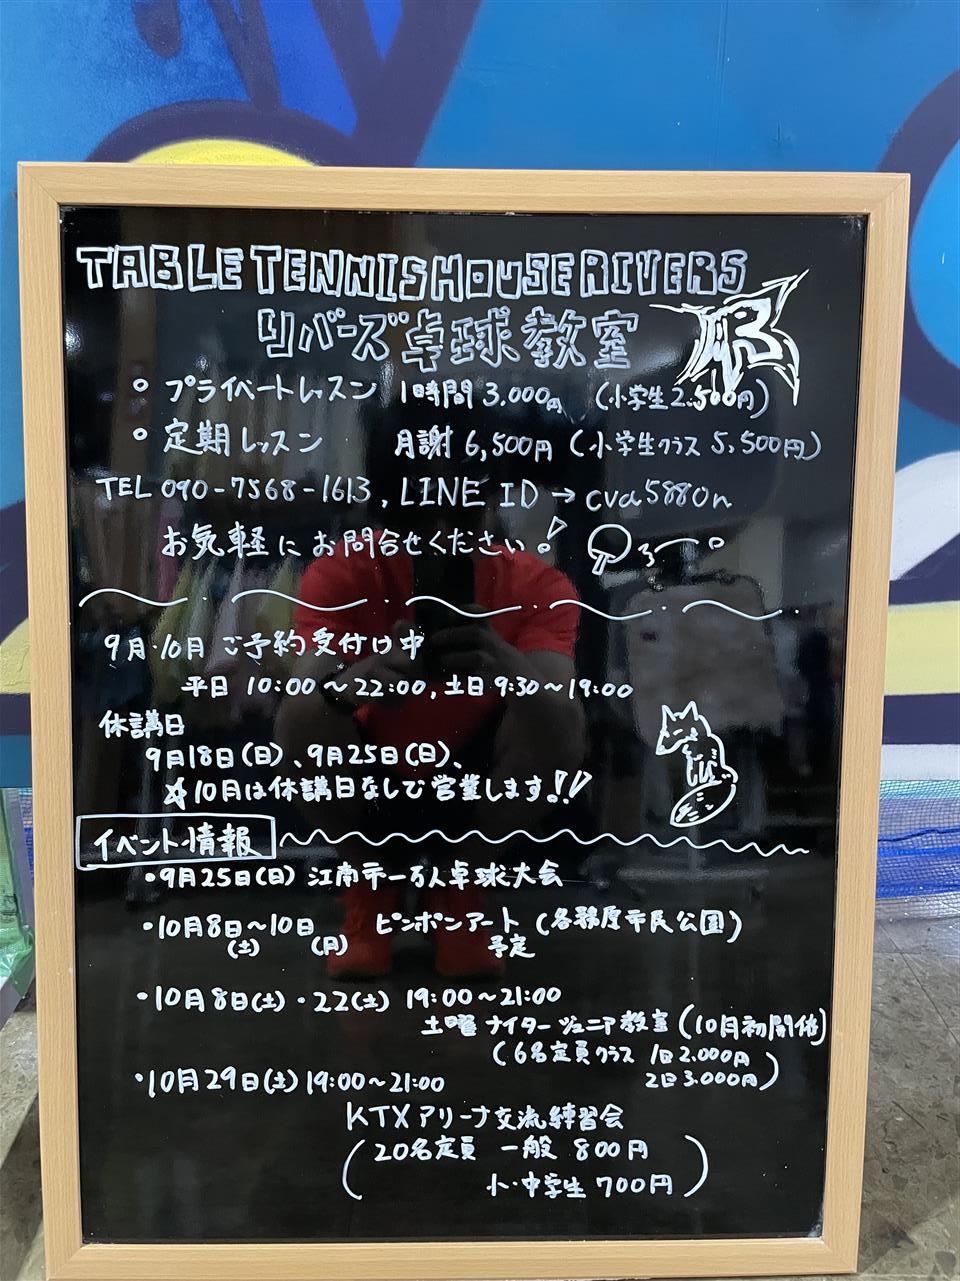 TABLE TENNIS HOUSE RIVERS
リバーズ卓球教室
○ プライベートレッスン 1時間 3,000円 (小学生2,500円)
○ 定期レッスン 月謝 6,500円 (小学生クラス 5,500円)
TEL 090-7568-1613, LINE ID → cva5880n
お気軽にお問合せください!
9月・10月 ご予約受付け中
平日 10:00〜22:00, 土日 9:30〜19:00
休講日
9月18日(日)、9月25日(日)、
☆10月は休講日なしで営業します!!
イベント情報
・9月25日(日) 江南市一万人卓球大会
・10月8日〜10日 ピンポンアート (各務原市民公園)
(土) (月) 予定
・10月8日(土)・22(土) 19:00〜21:00
土曜ナイタージュニア教室 (10月初開催)
(6名定員クラス 1回2,000円
2回3,000円)
・10月29日(土) 19:00〜21:00
KTXアリーナ交流練習会
(20名定員 一般 800円
小・中学生 700円)